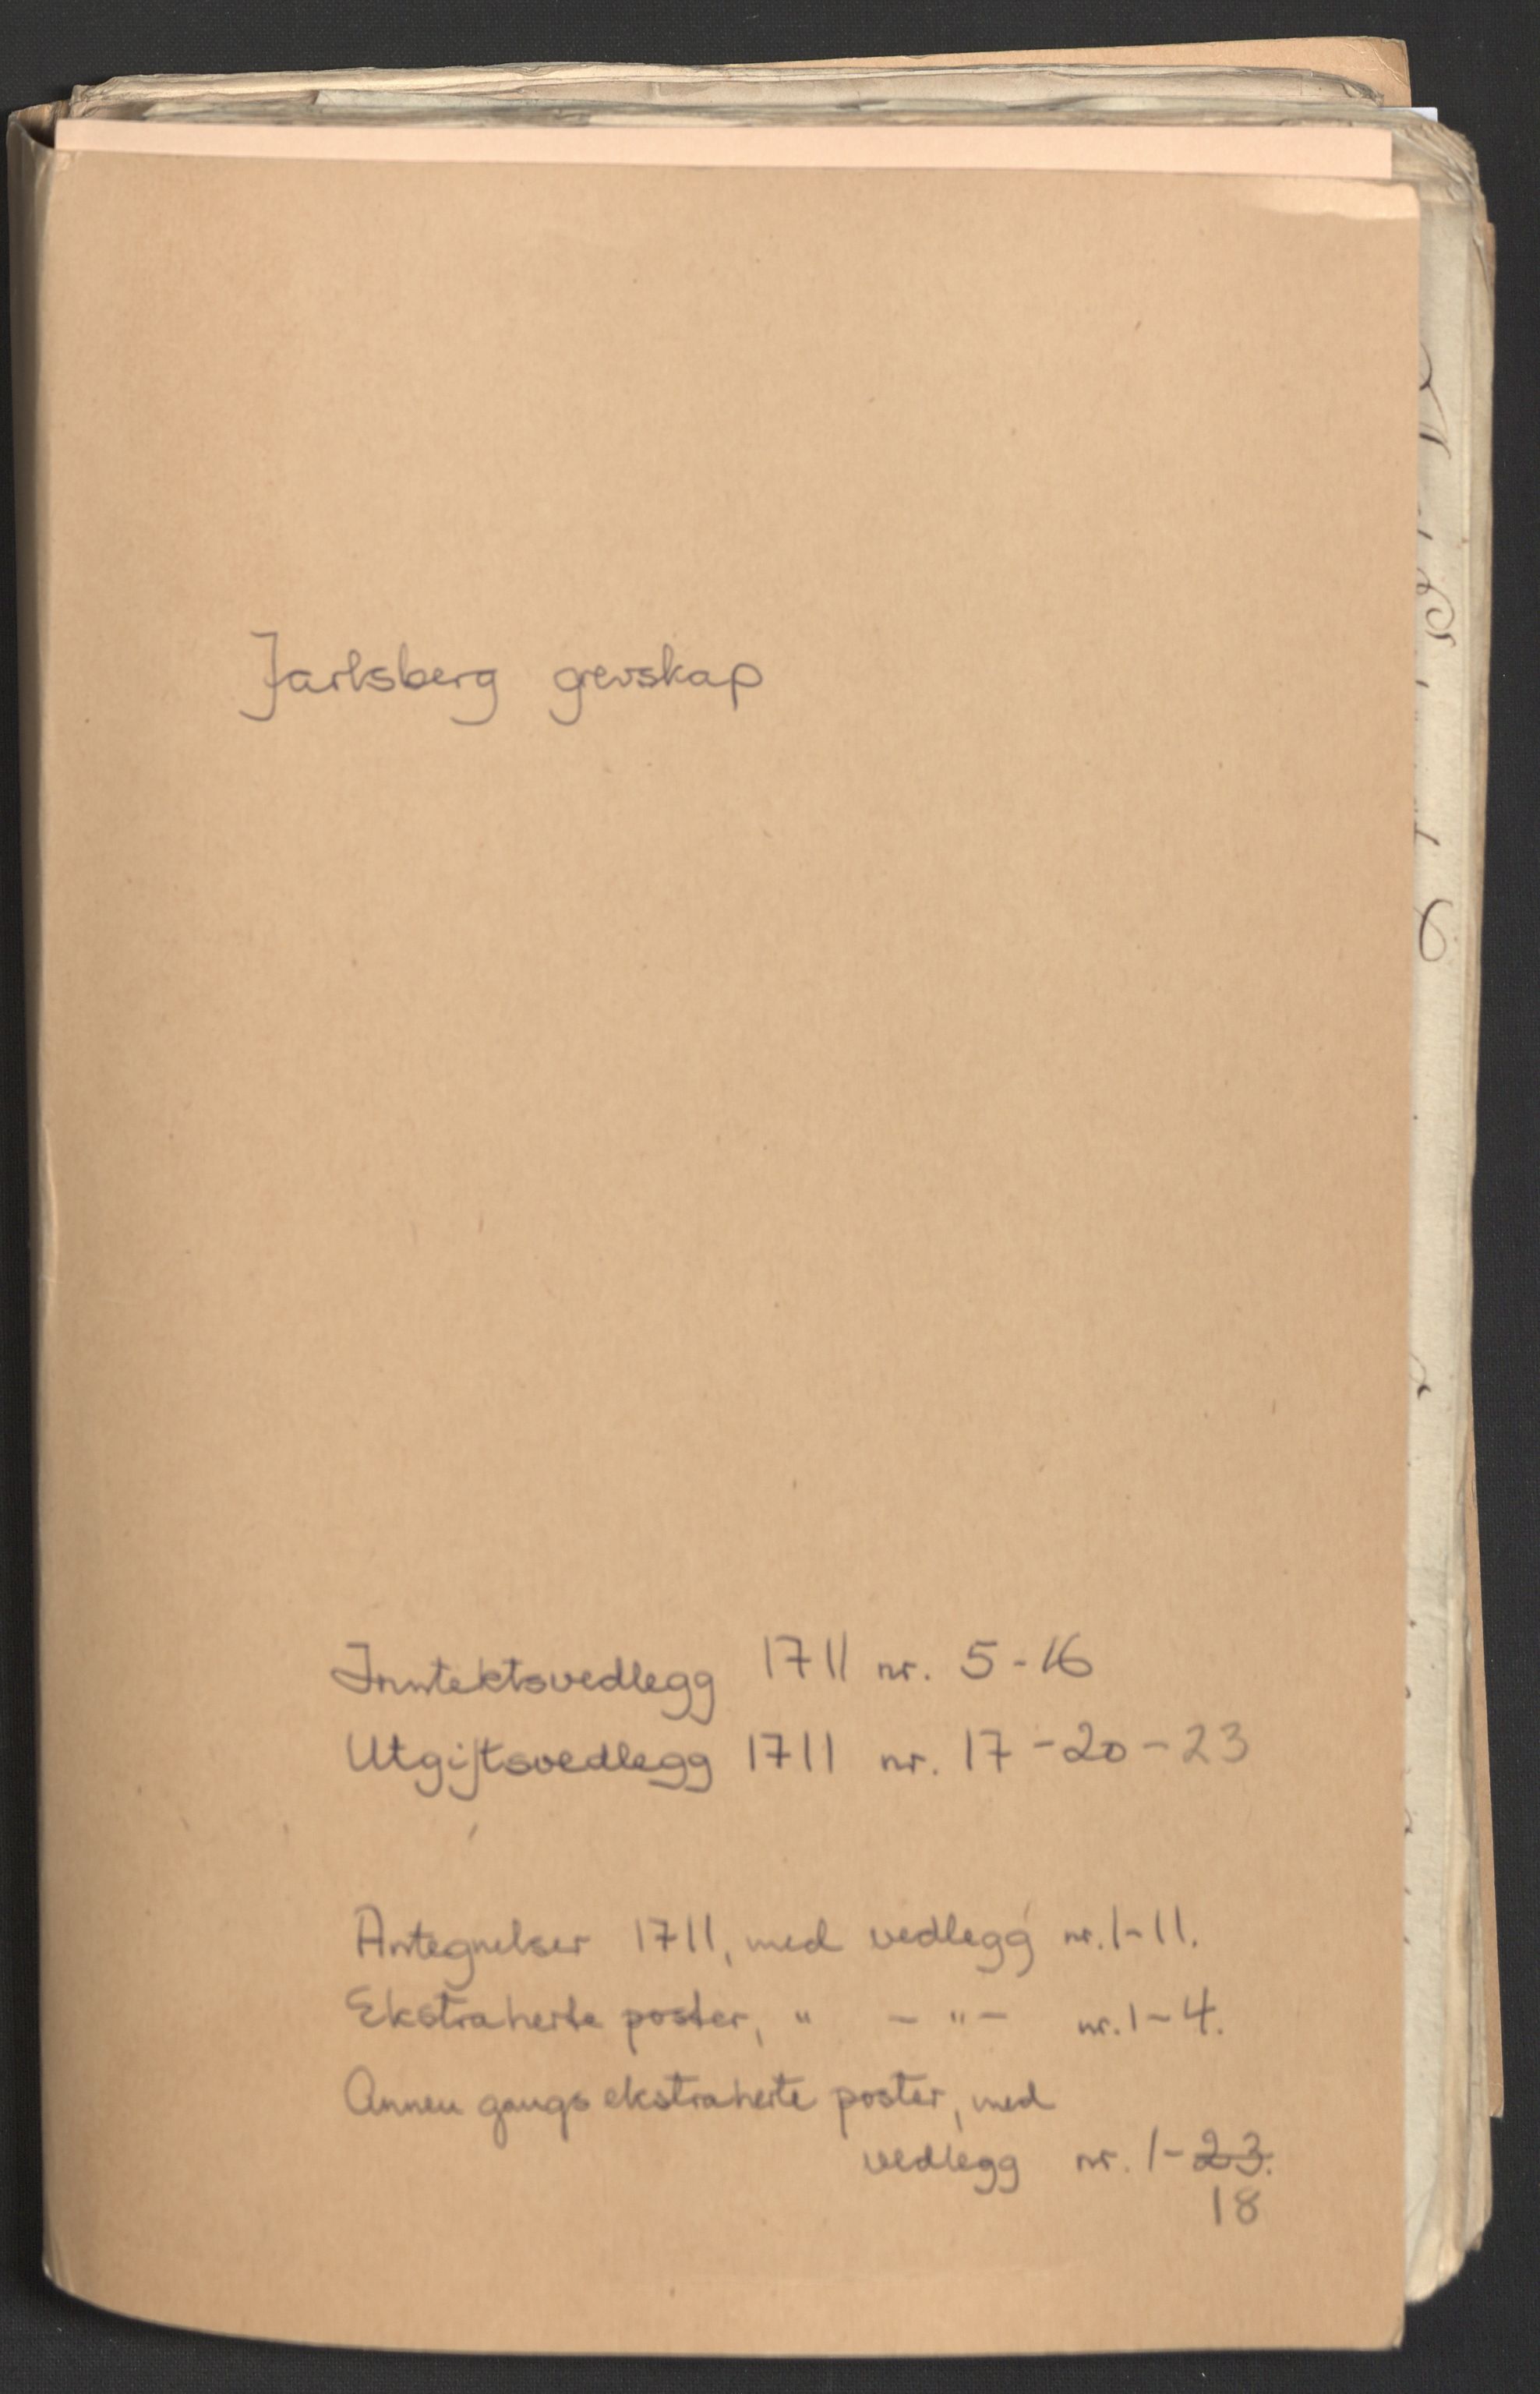 Jarlsberg grevskap
Inntektsvedlegg 1711 nr. 5-16
Utgiftsvedlegg 1711 nr. 17-20-23
Antegnelser 1711, med vedlegg nr. 1-11.
Ekstraherte poster, " - " - nr. 1-4.
Annen gangs ekstraherte poster, med
vedlegg nr. 1-23.
18